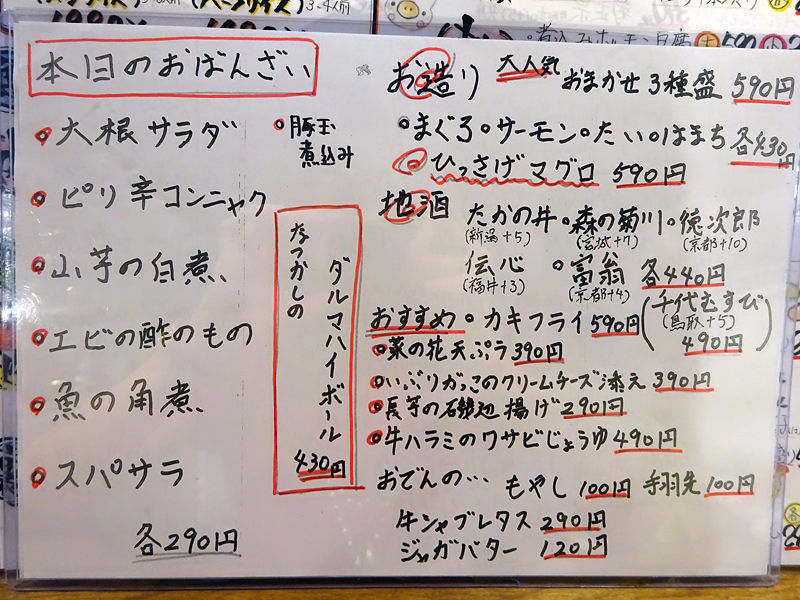 本日のおばんざい
大根サラダ
ピリ辛コンニャク
山芋の白煮
エビの酢のもの
魚の角煮
スパサラ
各290円
豚玉
煮込み
なつかしの
ダルマハイボール
430円
お造り 大人気 おまかせ3種盛 590円
まぐろ・サーモン・たい・はまち 各430円
ひっさげマグロ 590円
地酒 たかの井・森の菊川・徳次郎
(新潟+5) (宮城+7) (京都+10)
伝心・富翁 各440円
(福井+3) (京都+4)
(千代むすび
(鳥取+5)
490円)
おすすめ・カキフライ 590円
菜の花天ぷら 390円
いぶりがっこのクリームチーズ添え 390円
長芋の磯辺揚げ 290円
牛ハラミのワサビじょうゆ 490円
おでんの… もやし 100円 手羽先 100円
牛シャブレタス 290円
ジャガバター 120円